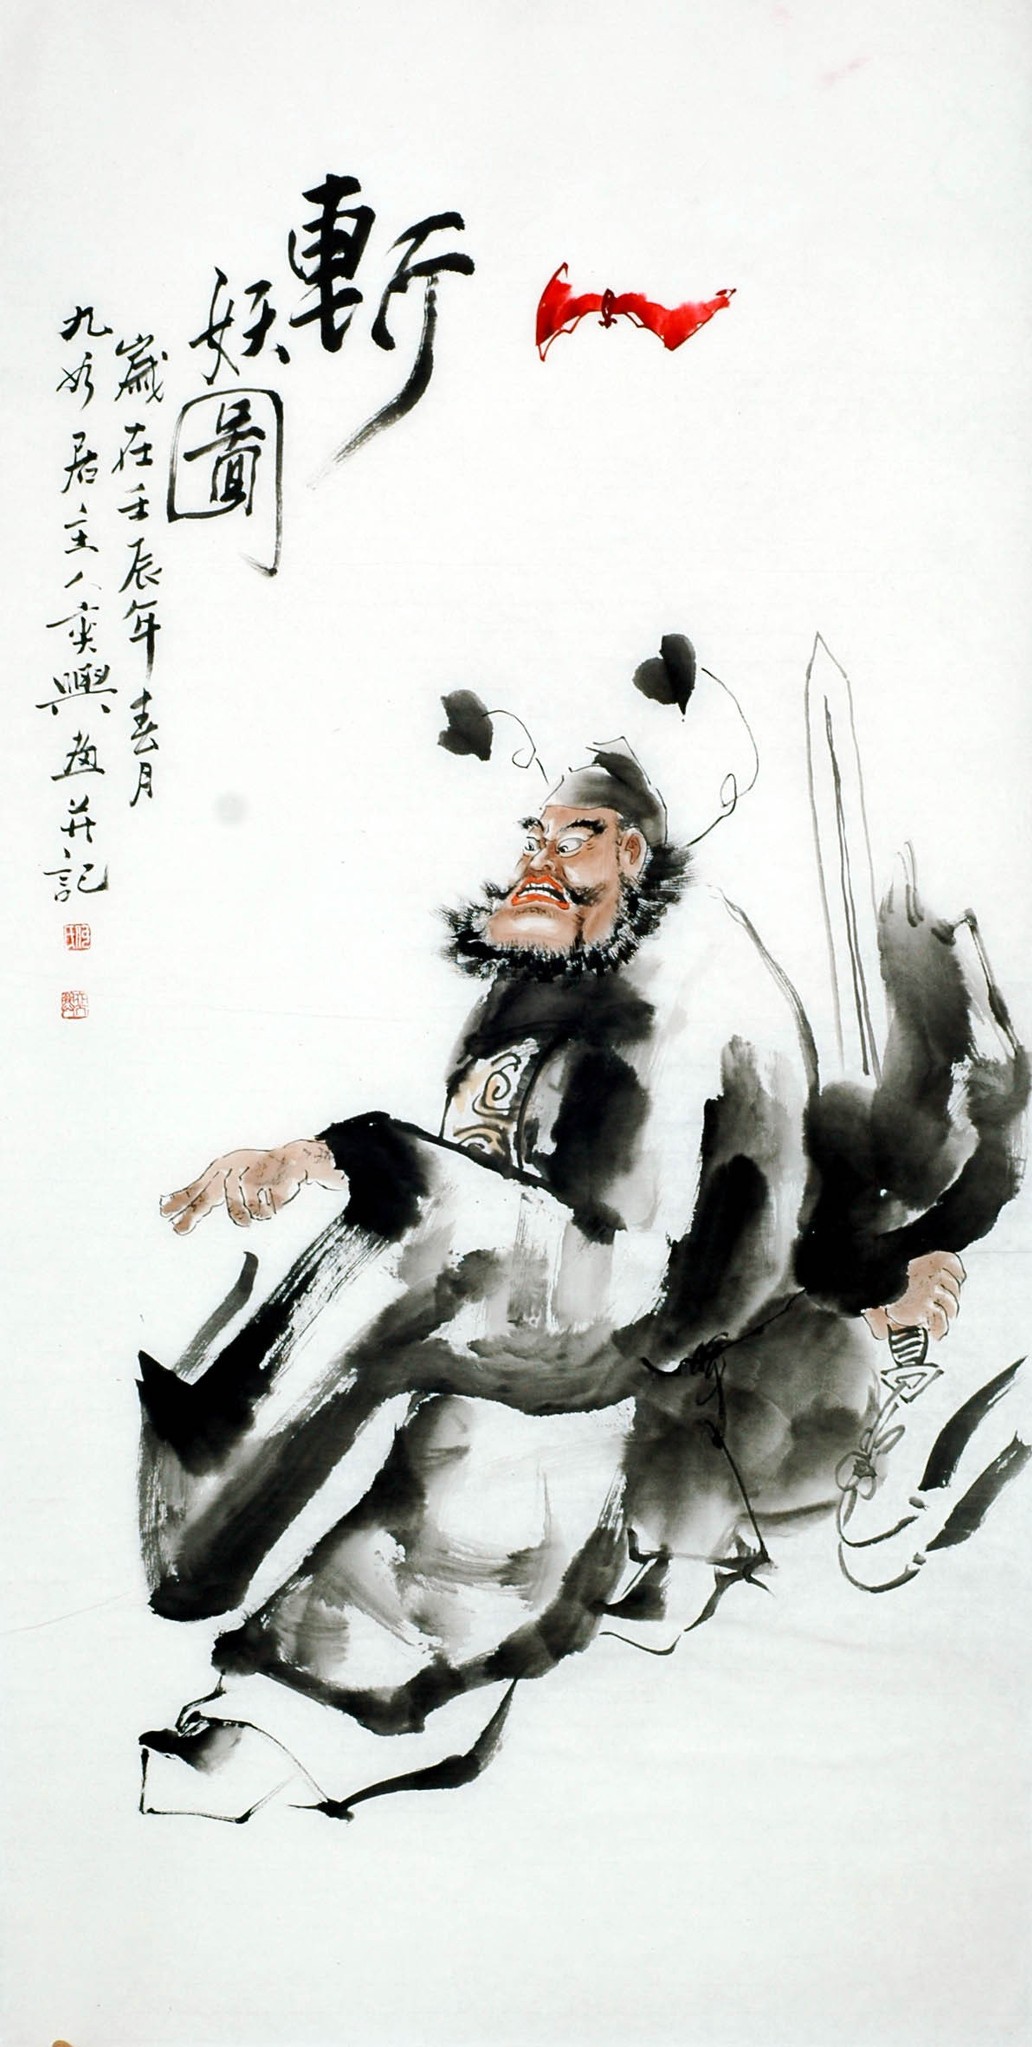 斬妖圖
歲在壬辰年春月
九如居主人奕興畫並記